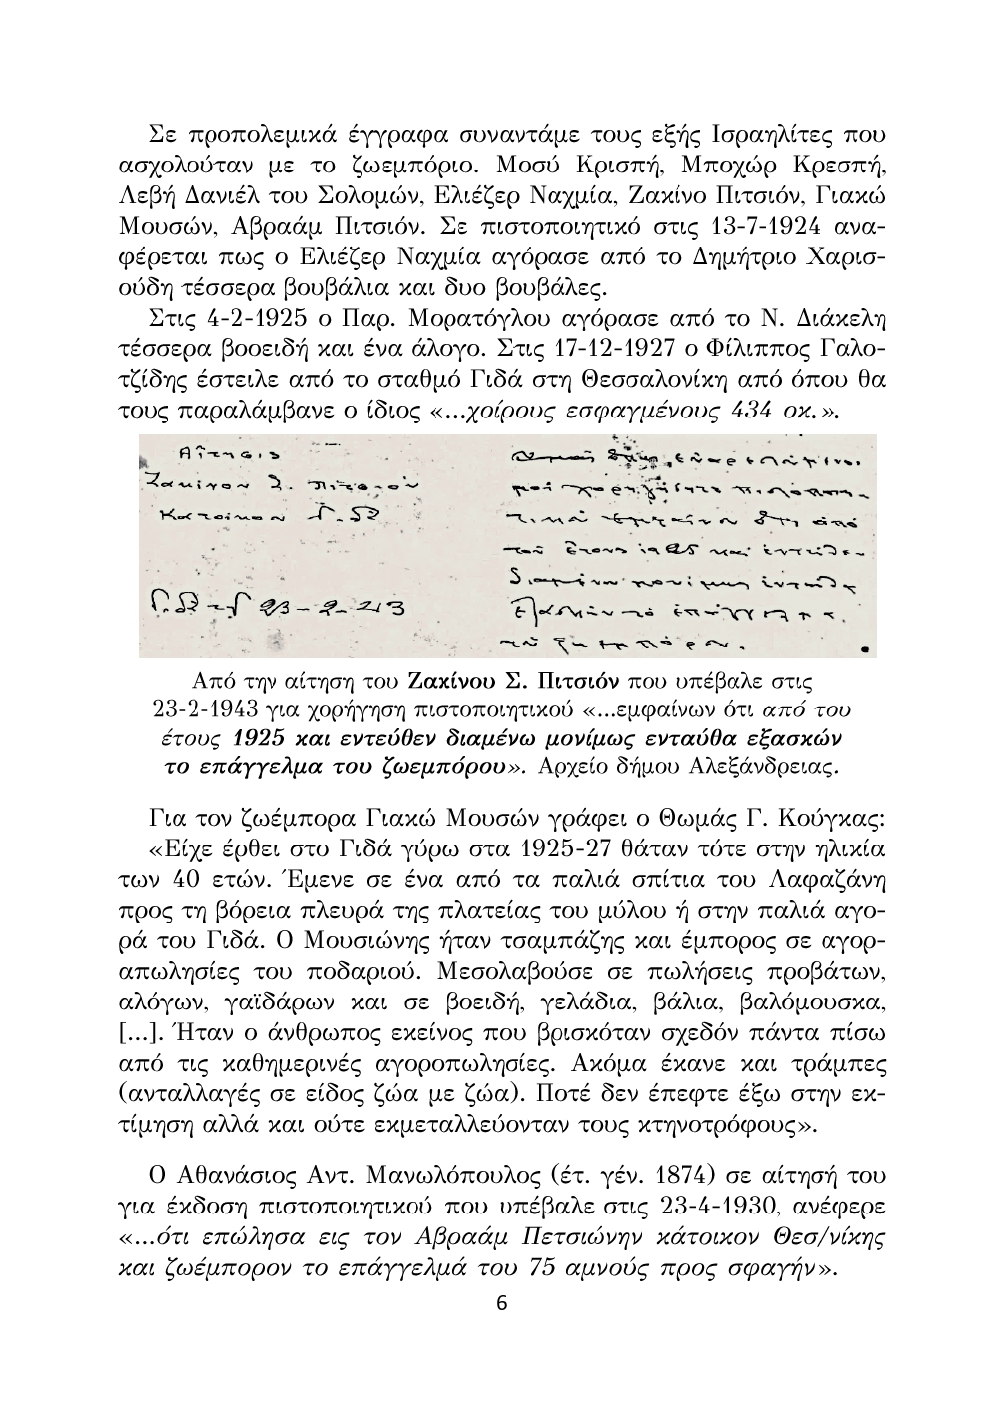 Σε προπολεμικά έγγραφα συναντάμε τους εξής Ισραηλίτες που
ασχολούταν με το ζωεμπόριο. Μοσύ Κρισπή, Μποχώρ Κρεσπή,
Λεβή Δανιέλ του Σολομών, Ελιέζερ Ναχμία, Ζακίνο Πιτσιόν, Γιακώ
Μουσών, Αβραάμ Πιτσιόν. Σε πιστοποιητικό στις 13-7-1924 ανα-
φέρεται πως ο Ελιέζερ Ναχμία αγόρασε από το Δημήτριο Χαρισ-
ούδη τέσσερα βουβάλια και δυο βουβάλες.
Στις 4-2-1925 ο Παρ. Μορατόγλου αγόρασε από το Ν. Διάκελη
τέσσερα βοοειδή και ένα άλογο. Στις 17-12-1927 ο Φίλιππος Γαλο-
τζίδης έστειλε από το σταθμό Γιδά στη Θεσσαλονίκη από όπου θα
τους παραλάμβανε ο ίδιος «...χοίρους εσφαγμένους 434 οκ.».
Αίτησις
Ζακίνου Σ. Πιτσιόν
Κατοίκου Γ.
23-2-43
από
του έτους 1925 και εντεύθεν
διαμένω μονίμως
το επάγγελμα
του ζωεμπόρου.
Από την αίτηση του Ζακίνου Σ. Πιτσιόν που υπέβαλε στις
23-2-1943 για χορήγηση πιστοποιητικού «...εμφαίνων ότι από του
έτους 1925 και εντεύθεν διαμένω μονίμως ενταύθα εξασκών
το επάγγελμα του ζωεμπόρου». Αρχείο δήμου Αλεξάνδρειας.
Για τον ζωέμπορα Γιακώ Μουσών γράφει ο Θωμάς Γ. Κούγκας:
«Είχε έρθει στο Γιδά γύρω στα 1925-27 θάταν τότε στην ηλικία
των 40 ετών. Έμενε σε ένα από τα παλιά σπίτια του Λαφαζάνη
προς τη βόρεια πλευρά της πλατείας του μύλου ή στην παλιά αγο-
ρά του Γιδά. Ο Μουσιώνης ήταν τσαμπάζης και έμπορος σε αγορ-
απωλησίες του ποδαριού. Μεσολαβούσε σε πωλήσεις προβάτων,
αλόγων, γαϊδάρων και σε βοειδή, γελάδια, βάλια, βαλόμουσκα,
[...]. Ήταν ο άνθρωπος εκείνος που βρισκόταν σχεδόν πάντα πίσω
από τις καθημερινές αγοροπωλησίες. Ακόμα έκανε και τράμπες
(ανταλλαγές σε είδος ζώα με ζώα). Ποτέ δεν έπεφτε έξω στην εκ-
τίμηση αλλά και ούτε εκμεταλλεύονταν τους κτηνοτρόφους».
Ο Αθανάσιος Αντ. Μανωλόπουλος (έτ. γέν. 1874) σε αίτησή του
για έκδοση πιστοποιητικού που υπέβαλε στις 23-4-1930, ανέφερε
«...ότι επώλησα εις τον Αβραάμ Πετσιώνην κάτοικον Θεσ/νίκης
και ζωέμπορον το επάγγελμά του 75 αμνούς προς σφαγήν».
6